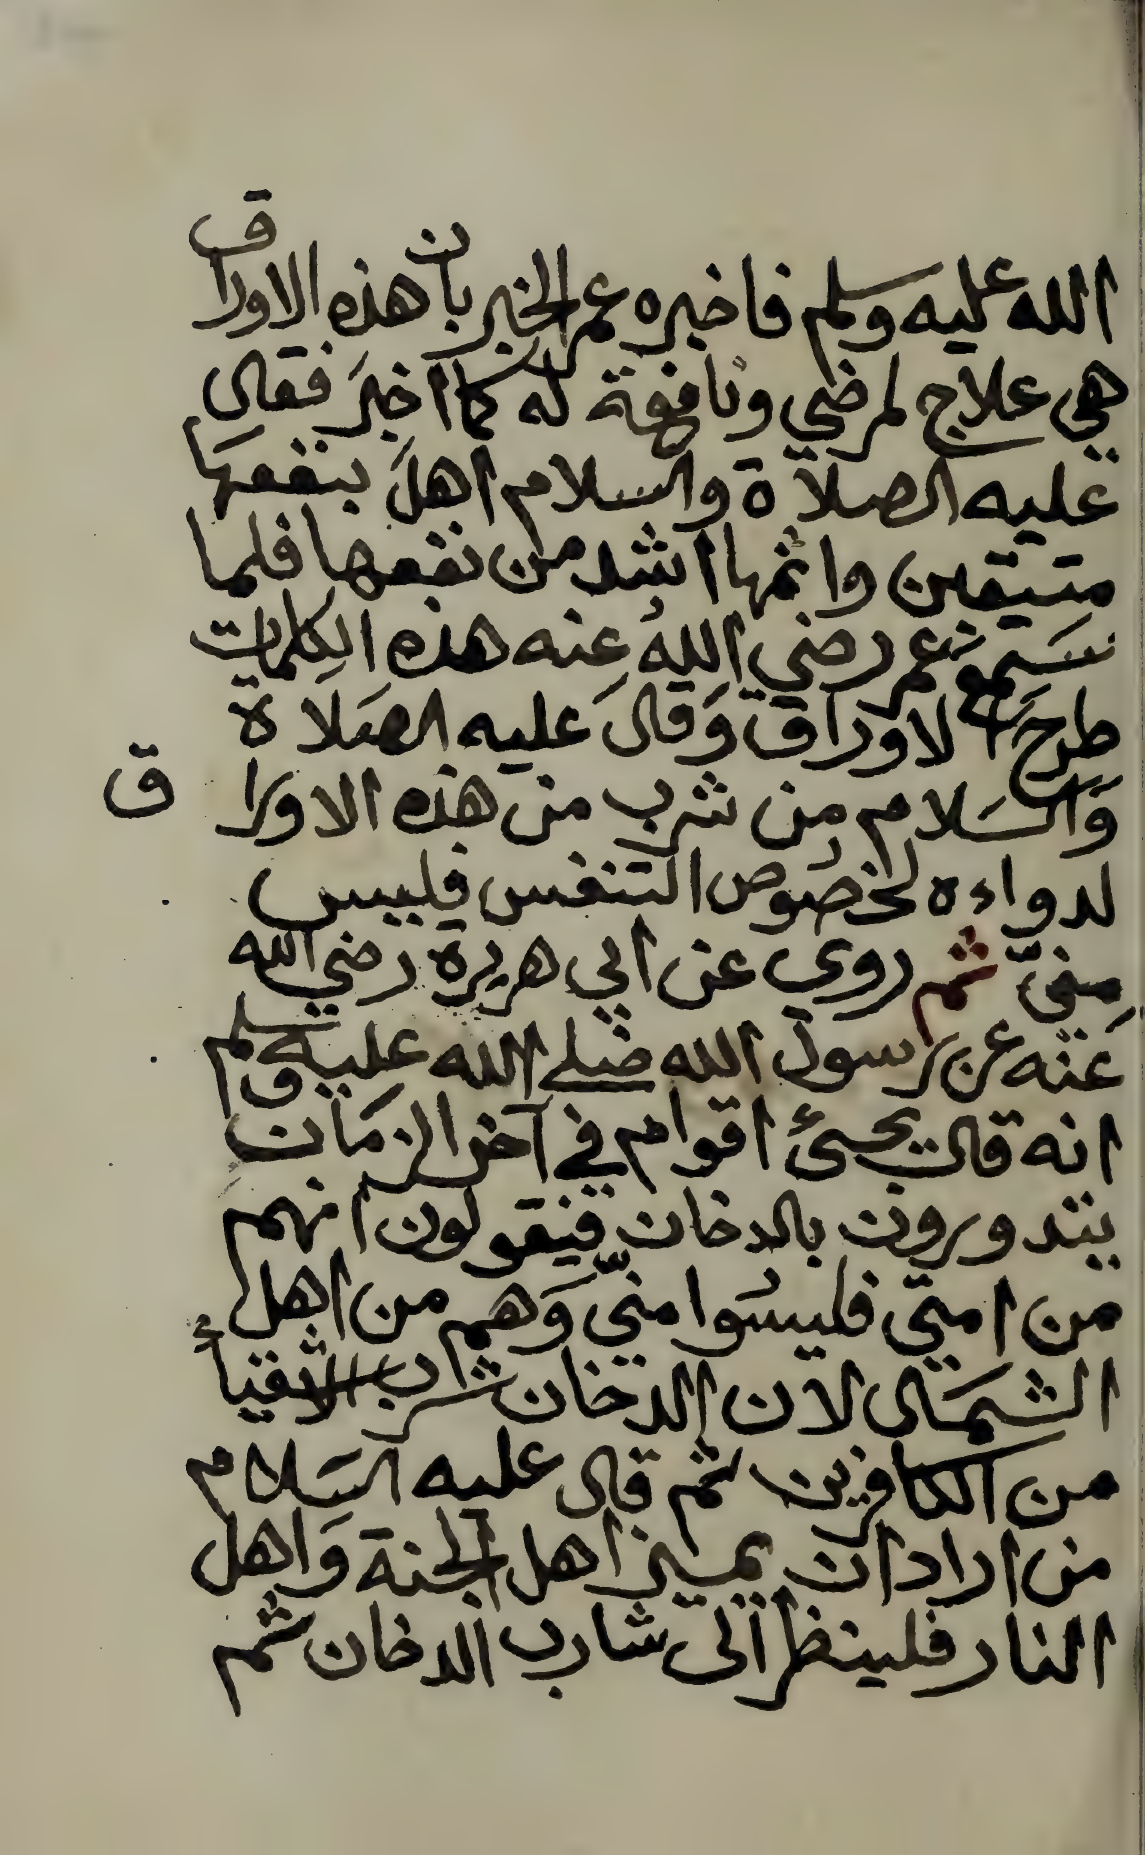 الله عليه وسلم فاخبره عمر الخبر بان هذه الاوراق
هي علاج لمرضي ونافعة له كما اخبرَ فقال
عليه الصلاة والسلام اهلَ بنفعها
متيقين واثمها اشد من نفعها فلما
سَمِع عمر رضي اللهُ عنه هذه الكلمات
طرحَ الاوراق وَقالَ عليه الصَلاة
وَالسَلام من شرب من هذه الاوَراق
لدواءه لخصُوص التنفس فليس
منيّ ثم روي عن ابي هريرة رضي الله
عَنه عن رسول الله صَلى الله عليه وسلم
انه قال يجئ اقوام في آخر الزمَان
يتدورون بالدخان فيقولون انهم
من امتي فليسُوا منيّ وَهم من اهل
الشمَال لان الدخان شراب الاشقيأ
من الكافرين ثم قال عليه السَلام
من اراد ان يميز اهل الجنة وَاهل
النار فلينظر الى شارب الدخان ثم